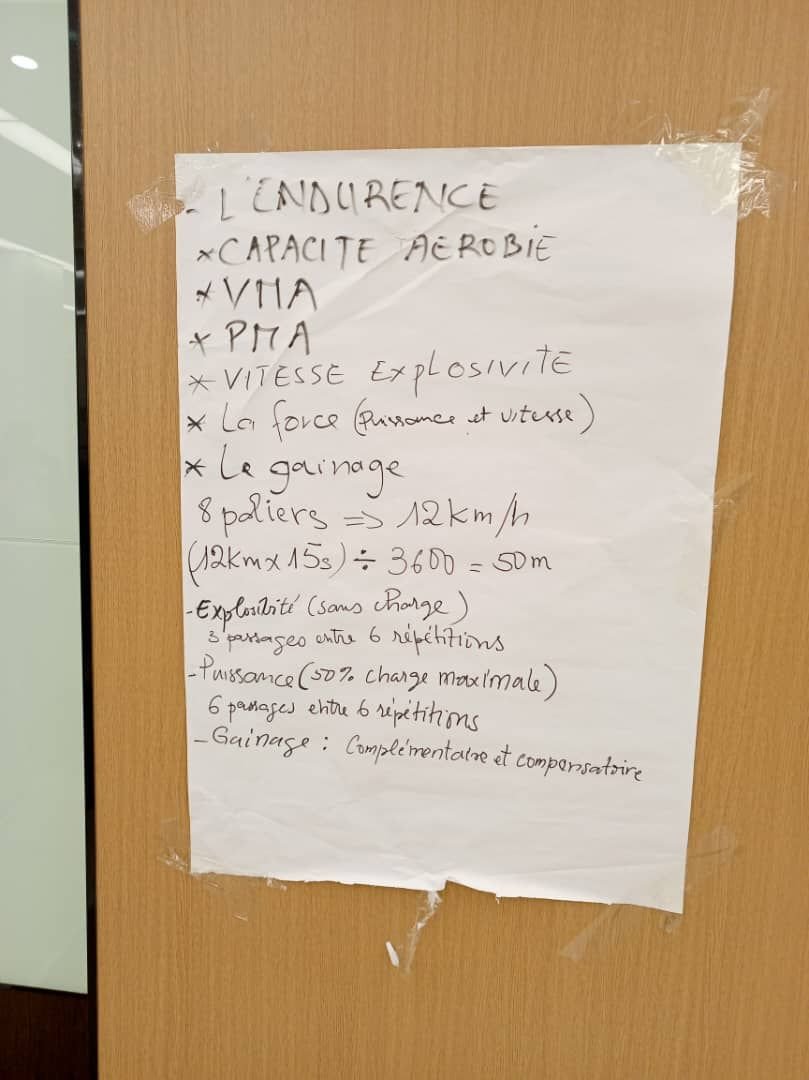 - L'ENDURENCE
* CAPACITE AEROBIE
* VMA
* PMA
* VITESSE EXPLOSIVITE
* La force (puissance et vitesse)
* Le gainage
8 paliers => 12km/h
(12km x 15s) ÷ 3600 = 50m
- Explosibité (sans charge)
3 passages entre 6 répétitions
- Puissance (50% charge maximale)
6 passages entre 6 répétitions
- Gainage : Complémentaire et compensatoire